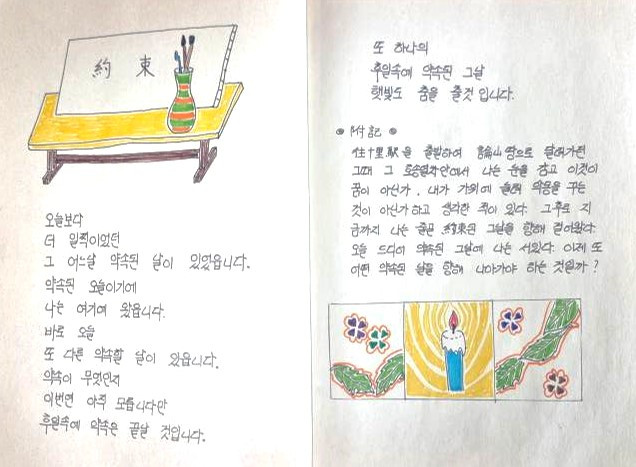 約 束
오늘보다
더 일찍이었던
그 어느날 약속된 날이 있었읍니다.
약속된 오늘이기에
나는 여기에 왔읍니다.
바로 오늘
또 다른 약속할 날이 있읍니다.
약속이 무엇인지
이번엔 아직 모릅니다만
후일속에 약속은 끝날 것입니다.
또 하나의
후일속에 약속된 그날
햇빛도 춤을 출것 입니다.
附記
往十里駅을 출발하여 論山땅으로 달려가던
그때 그 호송열차안에서 나는 눈을 감고 이것이
꿈이 아닌가, 내가 가위에 눌려 악몽을 꾸는
것이 아닌가하고 생각한 적이 있다. 그후로 지
금까지 나는 줄곧 約束된 그날을 향해 걸어왔다.
오늘 드디어 약속된 그날에 나는 서있다. 이제 또
어떤 약속된 날을 향해 나아가야 하는 것일까?